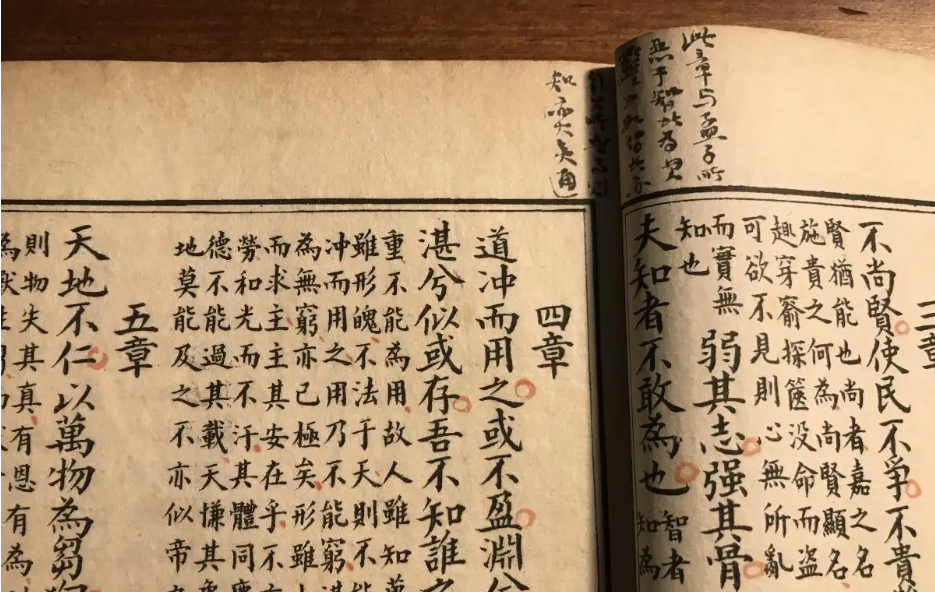 三章
不尚賢使民不爭不貴
賢猶能也尚者嘉之名
施貴之何為尚賢顯名
趣穿窬探篋没命而盜
可欲不見則心無所亂
而實無
知也
弱其志强其骨
夫知者不敢為也
智者
知為
此章与孟子所
四章
道冲而用之或不盈淵兮
湛兮似或存吾不知誰之
重不能為用故人雖知萬
雖形魄不法于天則不能
冲而用之用乃不能窮滿
為無窮亦已極矣形雖
而求主主其安在乎不亦
勞和光而不汗其體同塵
德不能過其載天慊其
地莫能及之不亦似帝
五章
天地不仁以萬物為芻狗
則物失其真有恩有為